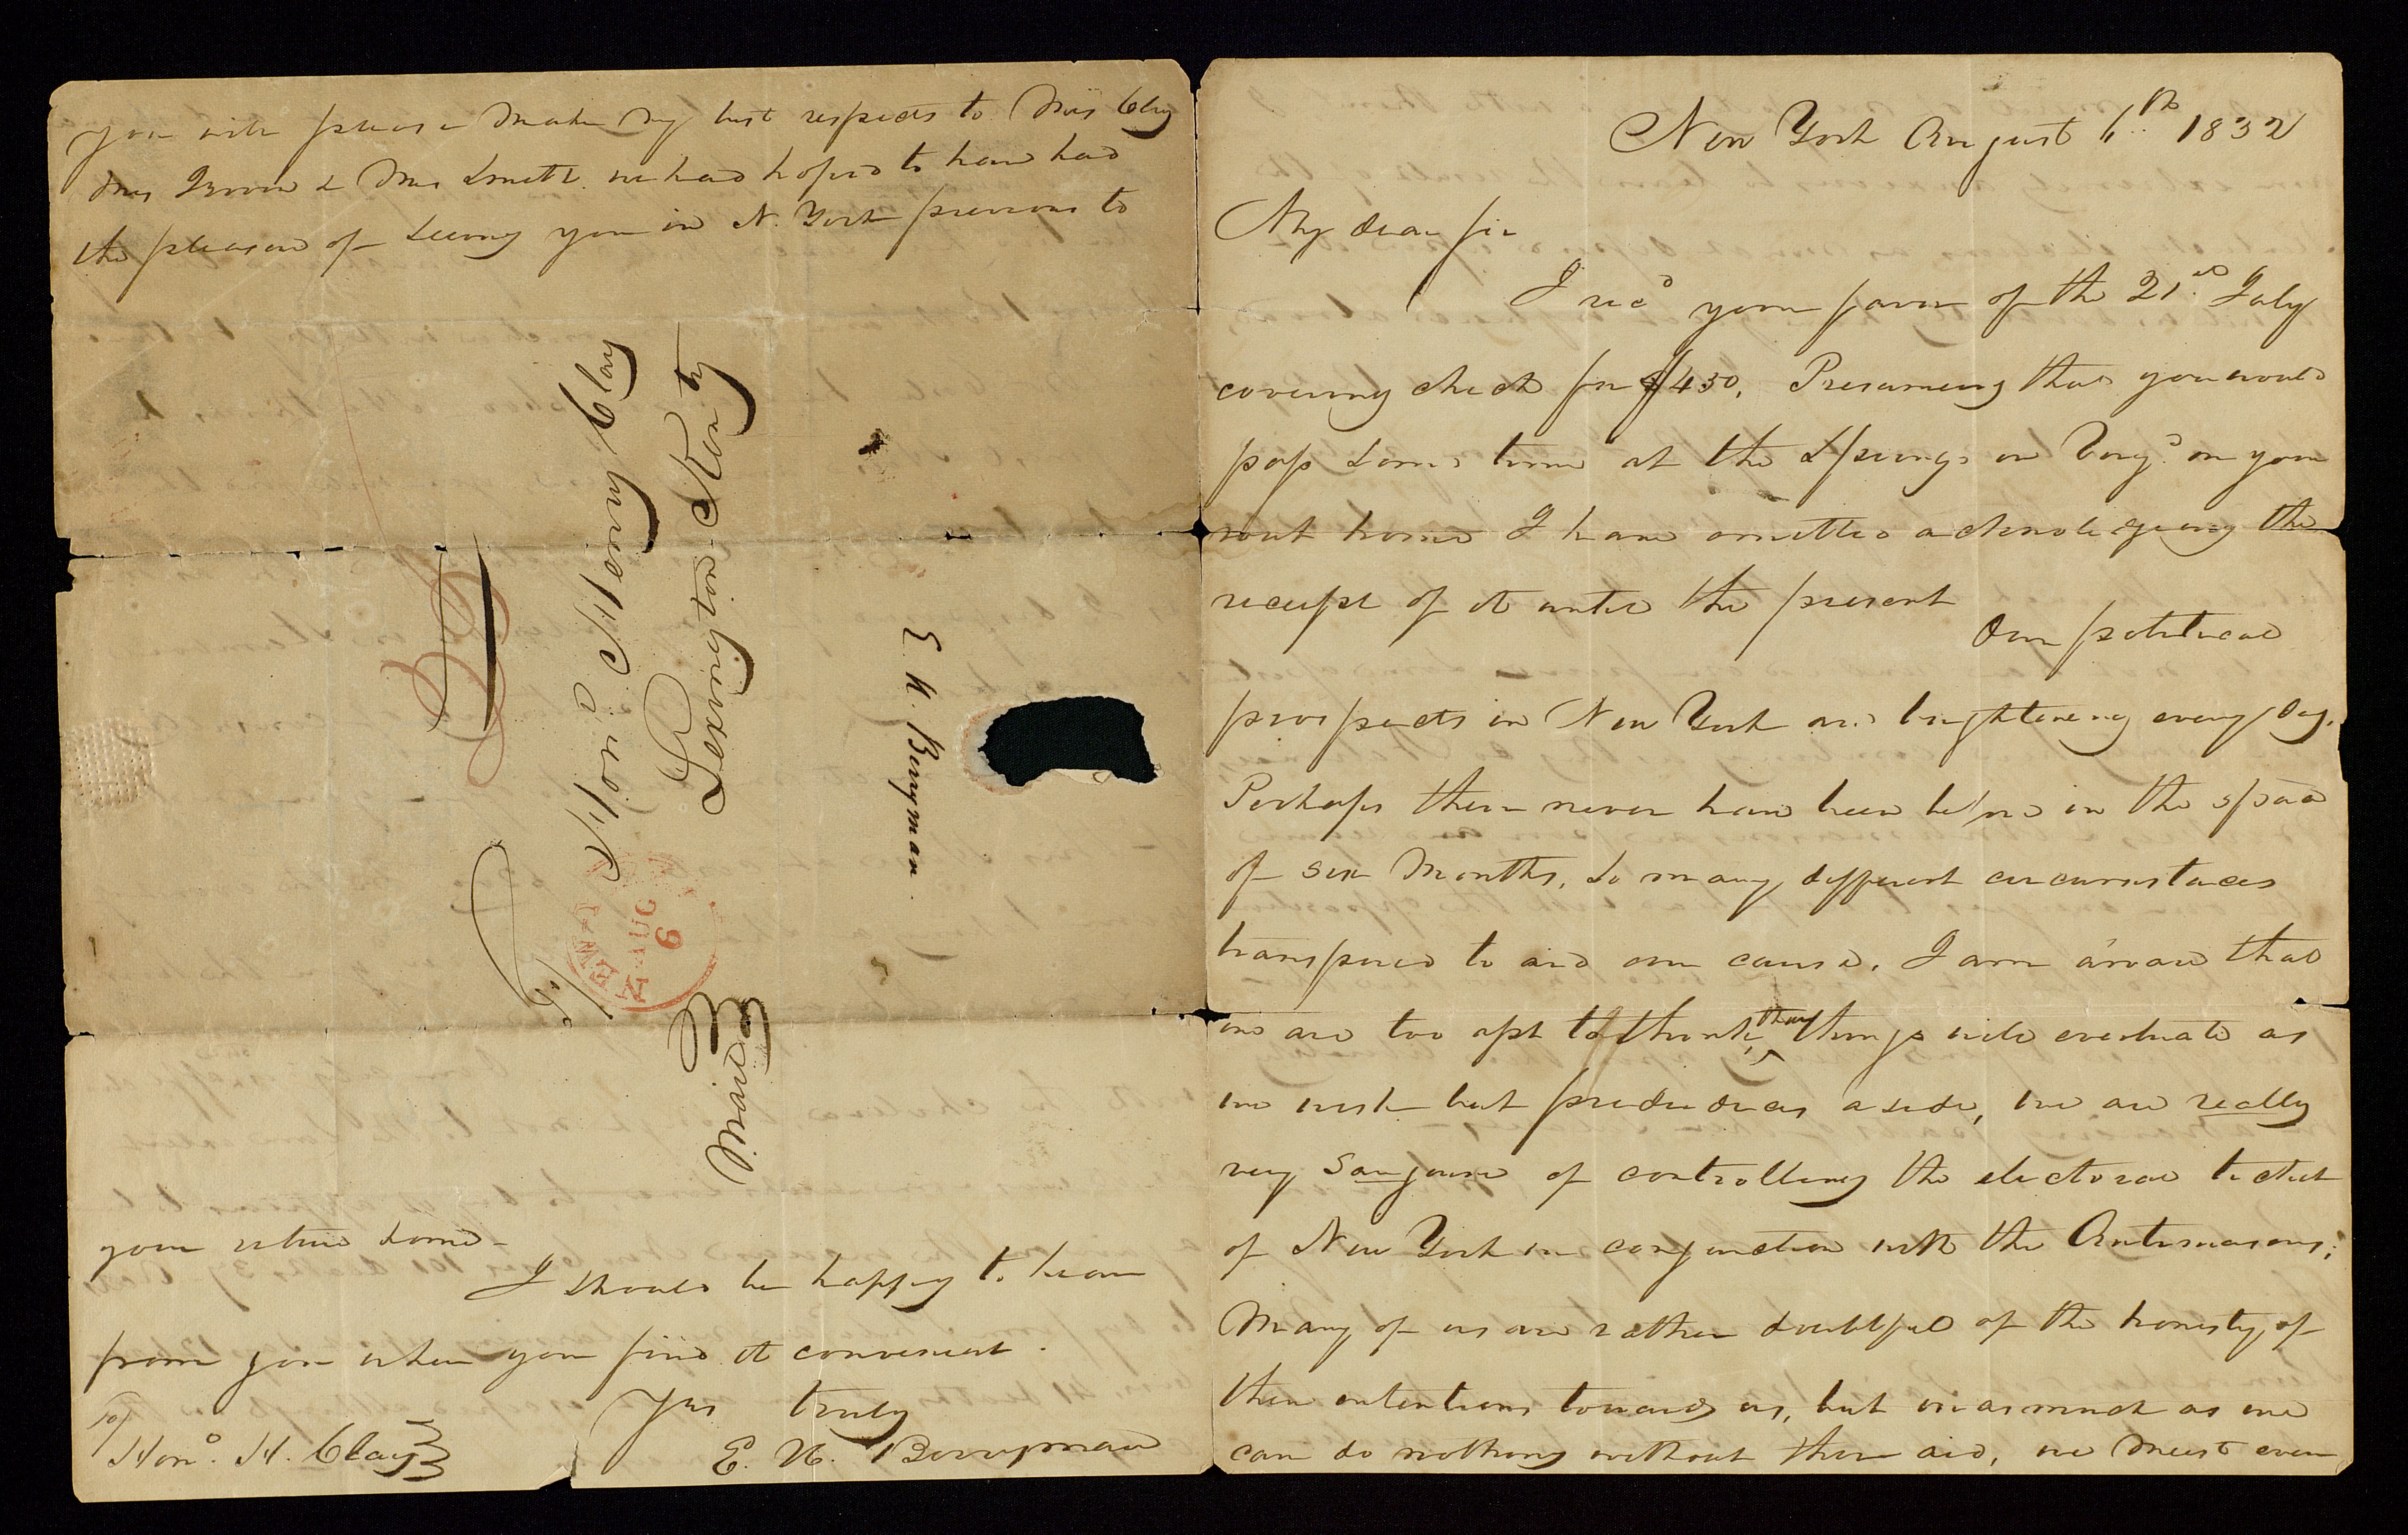 New York August 6th 1832
My dear sir
I recd your favor of the 21st July
covering check for $450. Presuming that you would
pass some time at the Springs in Virga on your
rout home I have omitted acknoledgeing the
receipt of it until the present
Our political
prospects in New York are brightening every day.
Perhaps there never have been before in the space
of six months, so many different circumstaces
transpired to aid our cause. I am aware that
we are too apt to think that things will eventuate as
we wish but predudices aside, we are really
very sanguine of controlling the electoral ticket
of New York in conjunction with the Antimasons;
Many of us are rather doubtful of the honesty of
their intentions towards us, but in as much as we
can do nothing without their aid, we must even
you will please make my best respects to Mrs Clay
Mrs Brown & Mrs Smith. we had hoped to have had
the pleasure of seeing you in N. York previous to
your return home
I should be happy to hear
from you when you find it convenient.
Yrs truly
E. N. Berryman
To
Hono. H. Clay
Hon. Henry Clay
Lexington Kenty
Mail
NEW Y
AUG
6
E. N. Berryman.